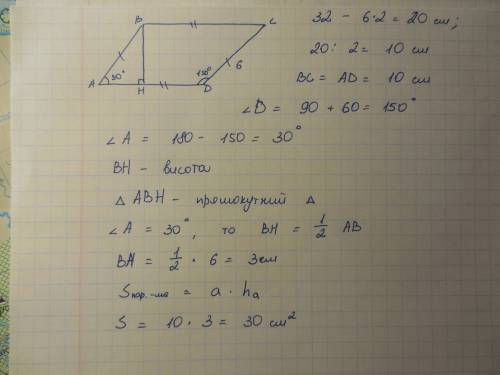 B C
32 - 6·2 = 20 см;
20 : 2 = 10 см
A 30° H 150° D 6
BC = AD = 10 см
∠D = 90 + 60 = 150°
∠A = 180 - 150 = 30°
BH - висота
△ ABH - прямокутний △
∠A = 30°, то BH = 1/2 AB
BH = 1/2 · 6 = 3 см
Sпар.-ма = a · ha
S = 10 · 3 = 30 см²